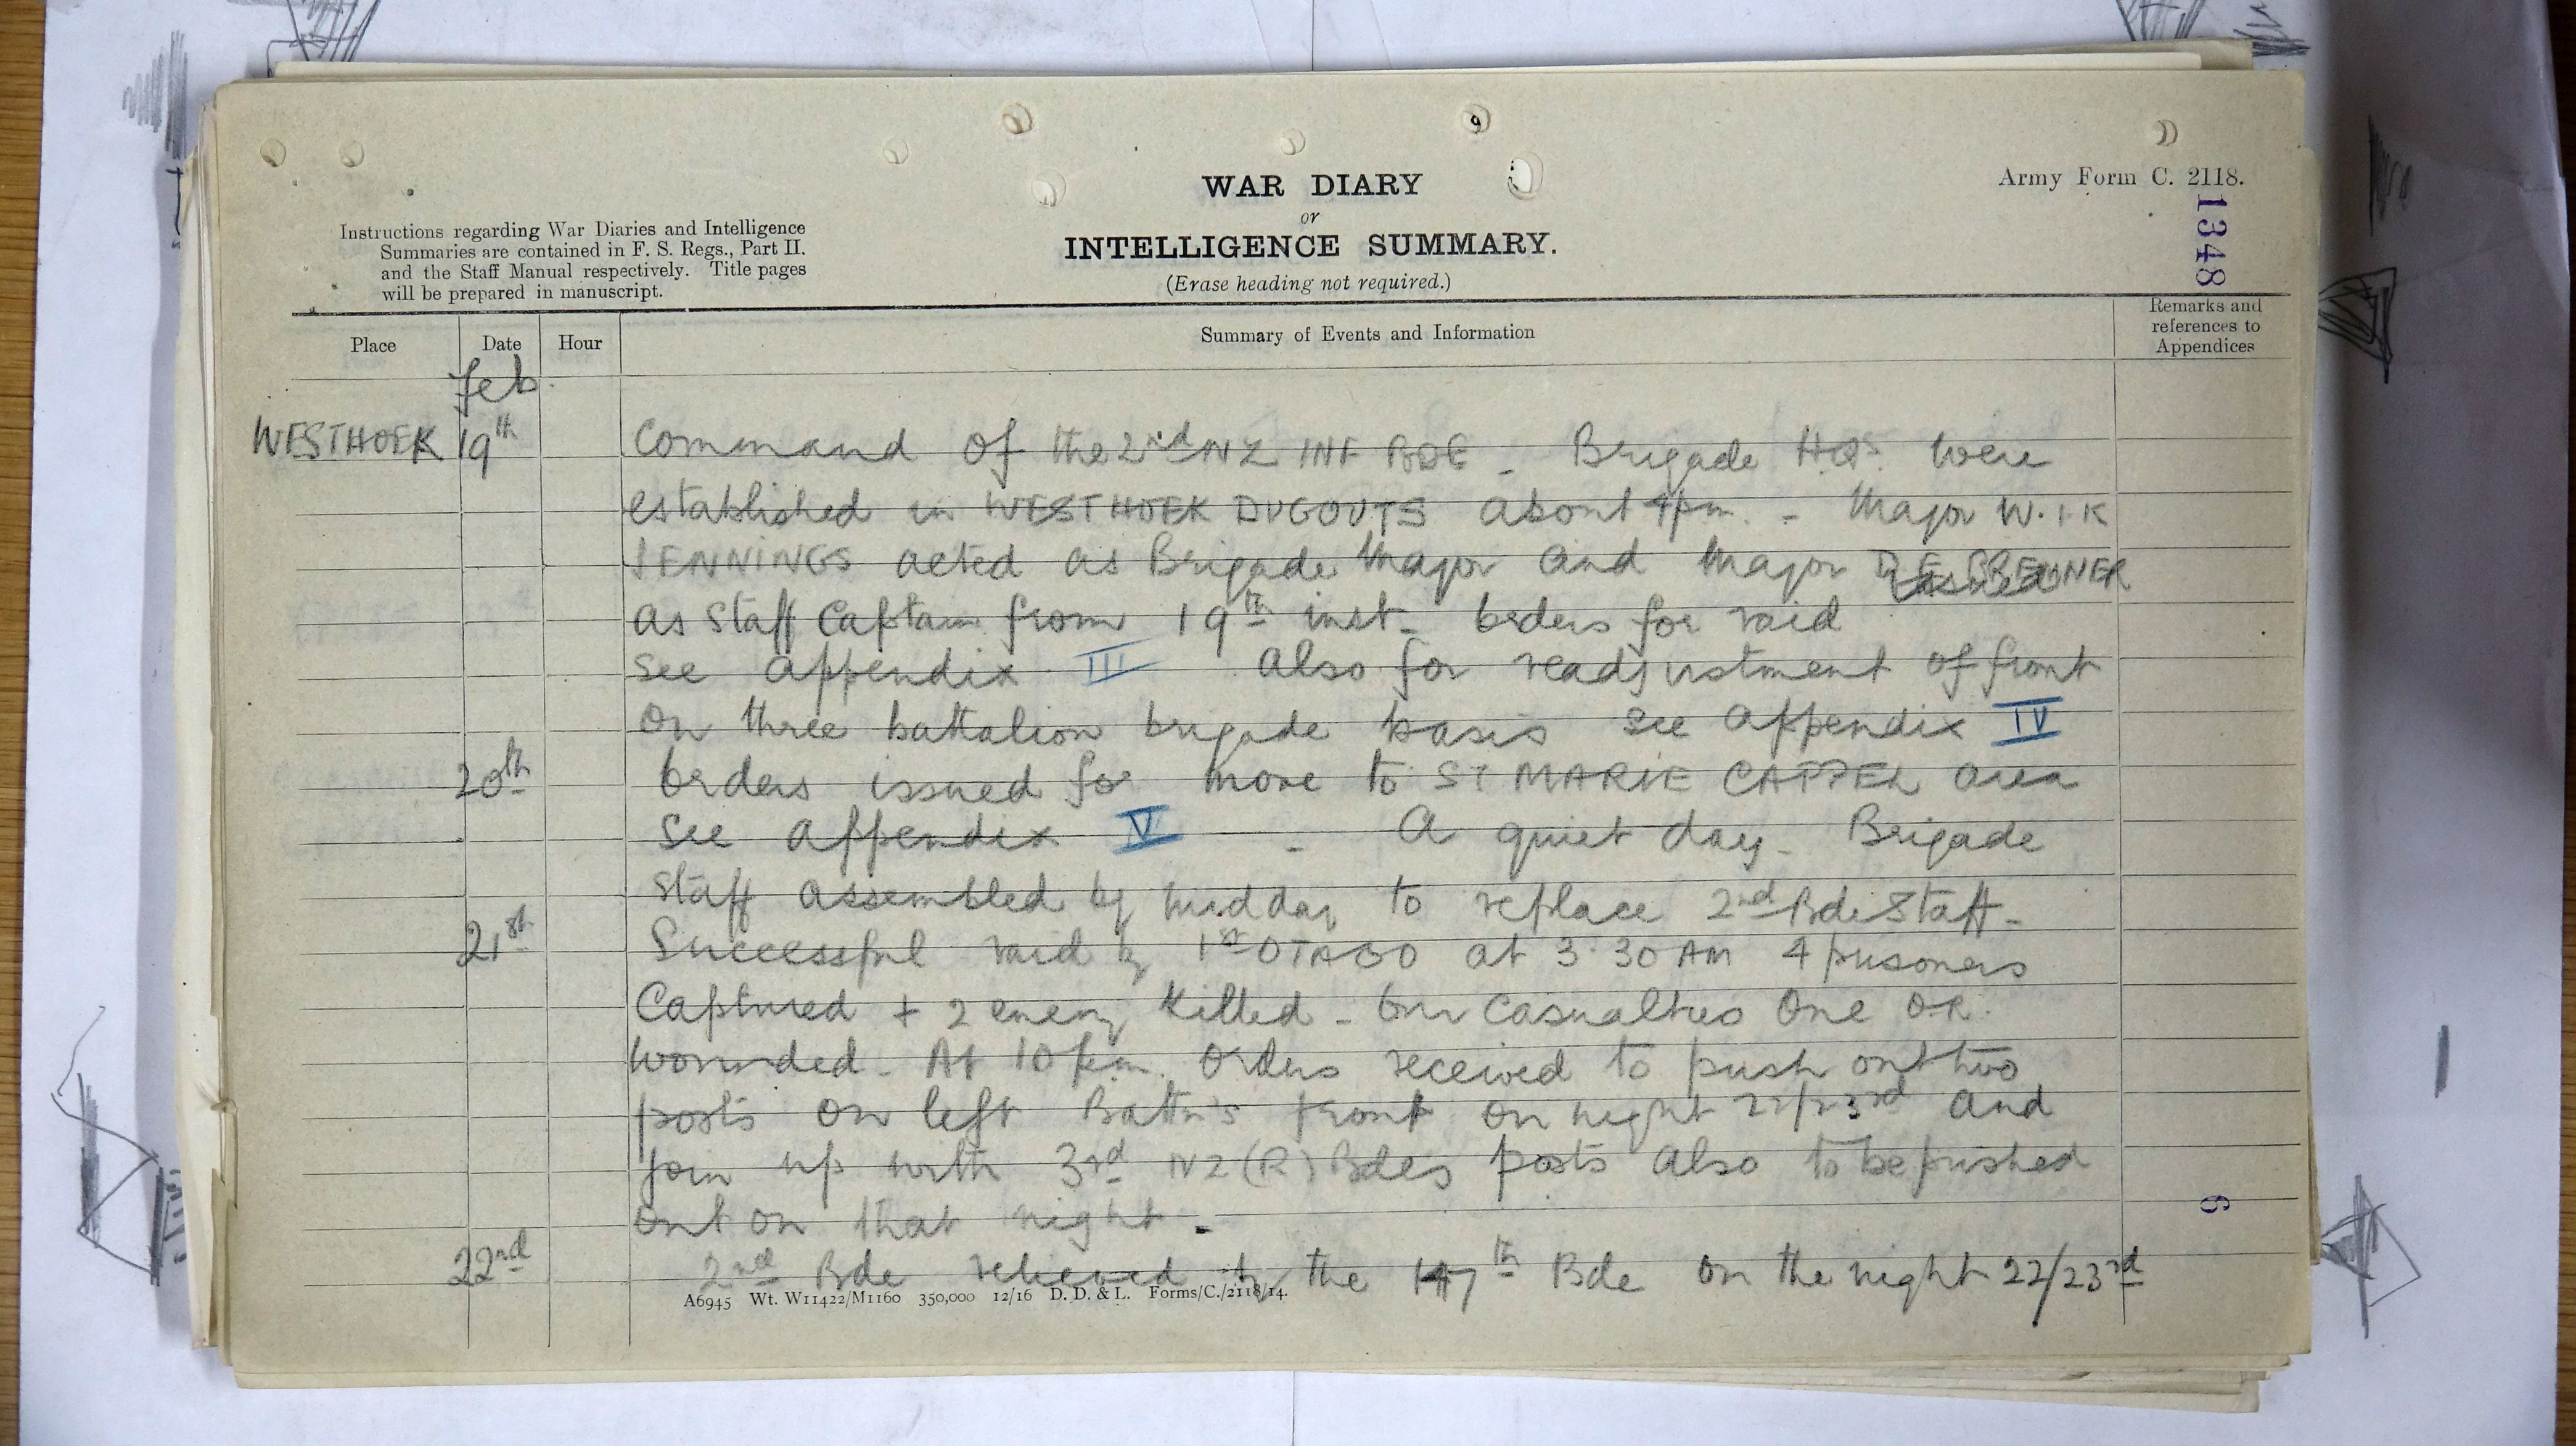 WAR DIARY
or
INTELLIGENCE SUMMARY.
(Erase heading not required.)
Army Form C. 2118.
1348
Instructions regarding War Diaries and Intelligence
Summaries are contained in F. S. Regs., Part II.
and the Staff Manual respectively. Title pages
will be prepared in manuscript.
Place Date Hour Summary of Events and Information Remarks and references to Appendices
Feb.
WESTHOEK 19th Command of the 2nd NZ INF BDE - Brigade HQrs. were
established in WESTHOEK DUGOUTS about 4 pm. - Major W. I. K
JENNINGS acted as Brigade Major and Major D.E. BREMNER
as Staff Captain from 19th inst - Orders for raid
see appendix III also for readjustment of front
on three battalion brigade basis see appendix IV
20th Orders issued for move to ST MARIE CAPPEL area
see appendix V - A quiet day - Brigade
Staff assembled by midday to replace 2nd Bde Staff -
21st Successful raid by 1st OTAGO at 3.30 AM 4 prisoners
Captured + 2 enemy killed - Our casualties One OR.
wounded - At 10 pm. Orders received to push out two
posts on left Battn's front on night 22/23rd and
join up with 3rd NZ (R) Bde's posts also to be pushed
out on that night -
22nd 2nd Bde relieved by the 147th Bde on the night 22/23rd
6
A6945 Wt. W11422/M1160 350,000 12/16 D. D. & L. Forms/C./2118/14.